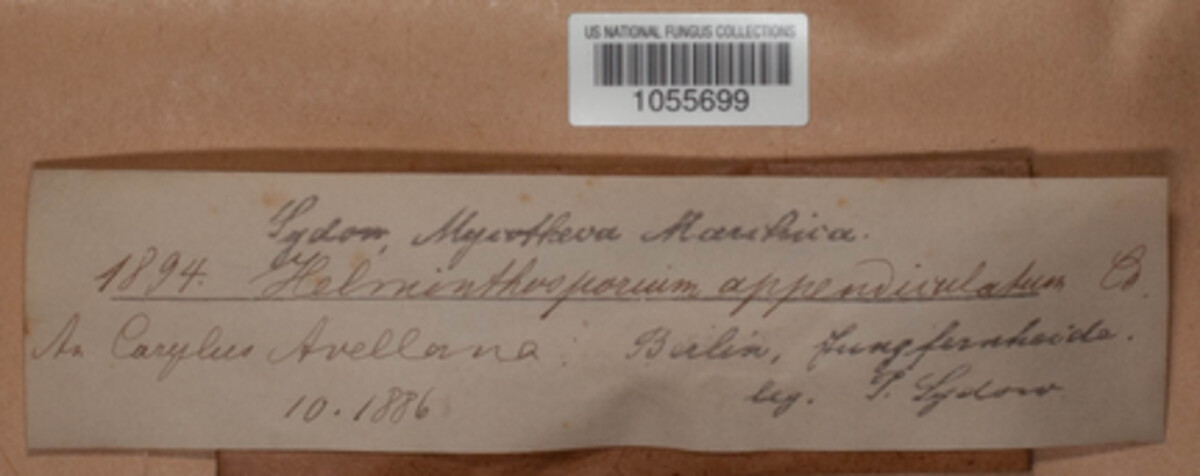 US NATIONAL FUNGUS COLLECTIONS
1055699
Sydow, Mycotheca Marchica.
1894. Helminthosporium appendiculatum Cd.
An Corylus Avellana. Berlin, Jungfernheide.
10.1886 leg. P. Sydow